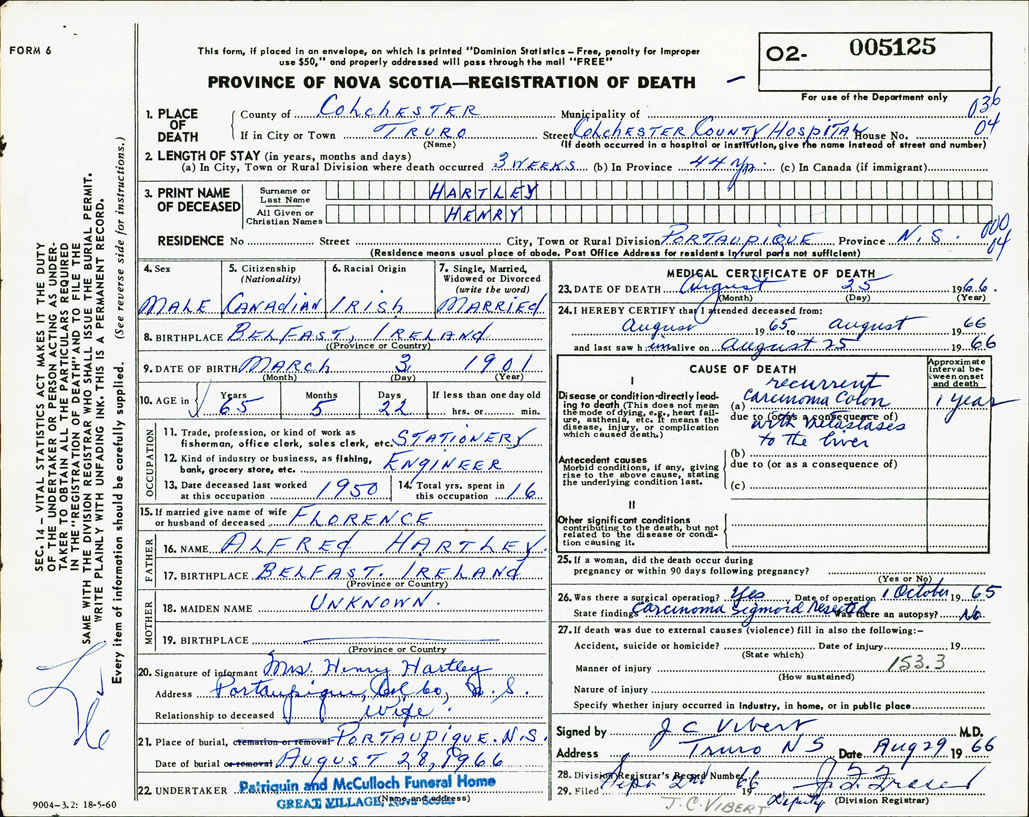 FORM 6
This form, if placed in an envelope, on which is printed "Dominion Statistics – Free, penalty for improper
use $50," and properly addressed will pass through the mail "FREE"
PROVINCE OF NOVA SCOTIA—REGISTRATION OF DEATH
O2- 005125
For use of the Department only
036
04
1. PLACE OF DEATH
County of COLCHESTER Municipality of
If in City or Town TRURO Street COLCHESTER COUNTY HOSPITAL House No.
(Name) (If death occurred in a hospital or institution, give the name instead of street and number)
2. LENGTH OF STAY (in years, months and days)
(a) In City, Town or Rural Division where death occurred 3 WEEKS (b) In Province 44 yrs. (c) In Canada (if immigrant)
3. PRINT NAME OF DECEASED
Surname or Last Name HARTLEY
All Given or Christian Names HENRY
RESIDENCE No Street City, Town or Rural Division PORTAUPIQUE Province N.S.
000
04
(Residence means usual place of abode. Post Office Address for residents in rural parts not sufficient)
4. Sex MALE
5. Citizenship (Nationality) CANADIAN
6. Racial Origin IRISH
7. Single, Married, Widowed or Divorced (write the word) MARRIED
8. BIRTHPLACE BELFAST, IRELAND
(Province or Country)
9. DATE OF BIRTH MARCH 3 1901
(Month) (Day) (Year)
10. AGE in Years 65 Months 5 Days 22 If less than one day old
hrs. or min.
OCCUPATION
11. Trade, profession, or kind of work as
fisherman, office clerk, sales clerk, etc. STATIONERY
12. Kind of industry or business, as fishing,
bank, grocery store, etc. ENGINEER
13. Date deceased last worked at this occupation 1950
14. Total yrs. spent in this occupation 16
15. If married give name of wife
or husband of deceased FLORENCE
FATHER
16. NAME ALFRED HARTLEY.
17. BIRTHPLACE BELFAST. IRELAND
(Province or Country)
MOTHER
18. MAIDEN NAME UNKNOWN.
19. BIRTHPLACE
(Province or Country)
20. Signature of informant Mrs. Henry Hartley
Address Portaupique, Col Co, N.S.
Relationship to deceased wife.
21. Place of burial, cremation or removal PORTAUPIQUE. N.S.
Date of burial or removal AUGUST 28, 1966
22. UNDERTAKER Patriquin and McCulloch Funeral Home
GREAT VILLAGE, NOVA SCOTIA
(Name and address)
MEDICAL CERTIFICATE OF DEATH
23. DATE OF DEATH August 25 1966.
(Month) (Day) (Year)
24. I HEREBY CERTIFY that I attended deceased from:
August 1965 to August 1966
and last saw him alive on August 25 1966
CAUSE OF DEATH
Approximate interval between onset and death
I
Disease or condition directly leading to death (This does not mean the mode of dying, e.g., heart failure, asthenia, etc. It means the disease, injury, or complication which caused death.)
recurrent
(a) Carcinoma Colon 1 year
due to (or as a consequence of)
with metastases
to the liver
Antecedent causes
Morbid conditions, if any, giving rise to the above cause, stating the underlying condition last.
(b)
due to (or as a consequence of)
(c)
II
Other significant conditions
contributing to the death, but not related to the disease or condition causing it.
25. If a woman, did the death occur during
pregnancy or within 90 days following pregnancy?
(Yes or No)
26. Was there a surgical operation? Yes Date of operation 1 October 1965
State findings Carcinoma Sigmoid resected Was there an autopsy? No
27. If death was due to external causes (violence) fill in also the following:–
Accident, suicide or homicide? Date of injury 19
(State which)
Manner of injury 153.3
(How sustained)
Nature of injury
Specify whether injury occurred in industry, in home, or in public place
Signed by J C Vibert M.D.
Address Truro N S Date Aug 29 1966
28. Division Registrar's Record Number
29. Filed Sept 2nd 1966 Deputy
(Division Registrar)
J.C. VIBERT
SEC. 14 – VITAL STATISTICS ACT MAKES IT THE DUTY
OF THE UNDERTAKER OR PERSON ACTING AS UNDER-
TAKER TO OBTAIN ALL THE PARTICULARS REQUIRED
IN THE "REGISTRATION OF DEATH" AND TO FILE THE
SAME WITH THE DIVISION REGISTRAR WHO SHALL ISSUE THE BURIAL PERMIT.
WRITE PLAINLY WITH UNFADING INK. THIS IS A PERMANENT RECORD.
Every item of information should be carefully supplied. (See reverse side for instructions.)
9004–3.2: 18-5-60